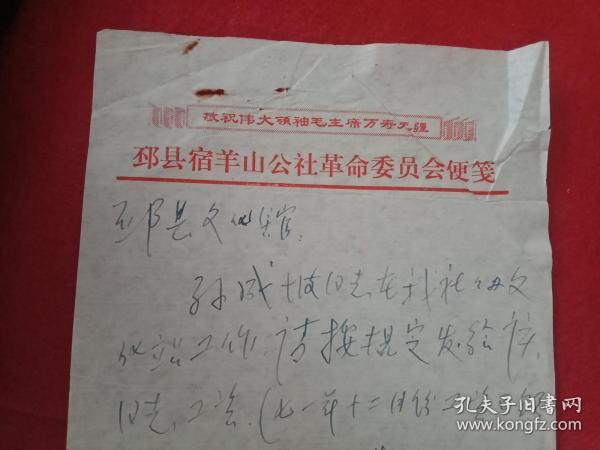 敬祝伟大领袖毛主席万寿无疆
邳县宿羊山公社革命委员会便笺
邳县文化馆:
孙成坡同志在我社文
化站工作,请按规定发给该
同志工资.(七一年十二月份工资
孔夫子旧书网
www.kongfz.com